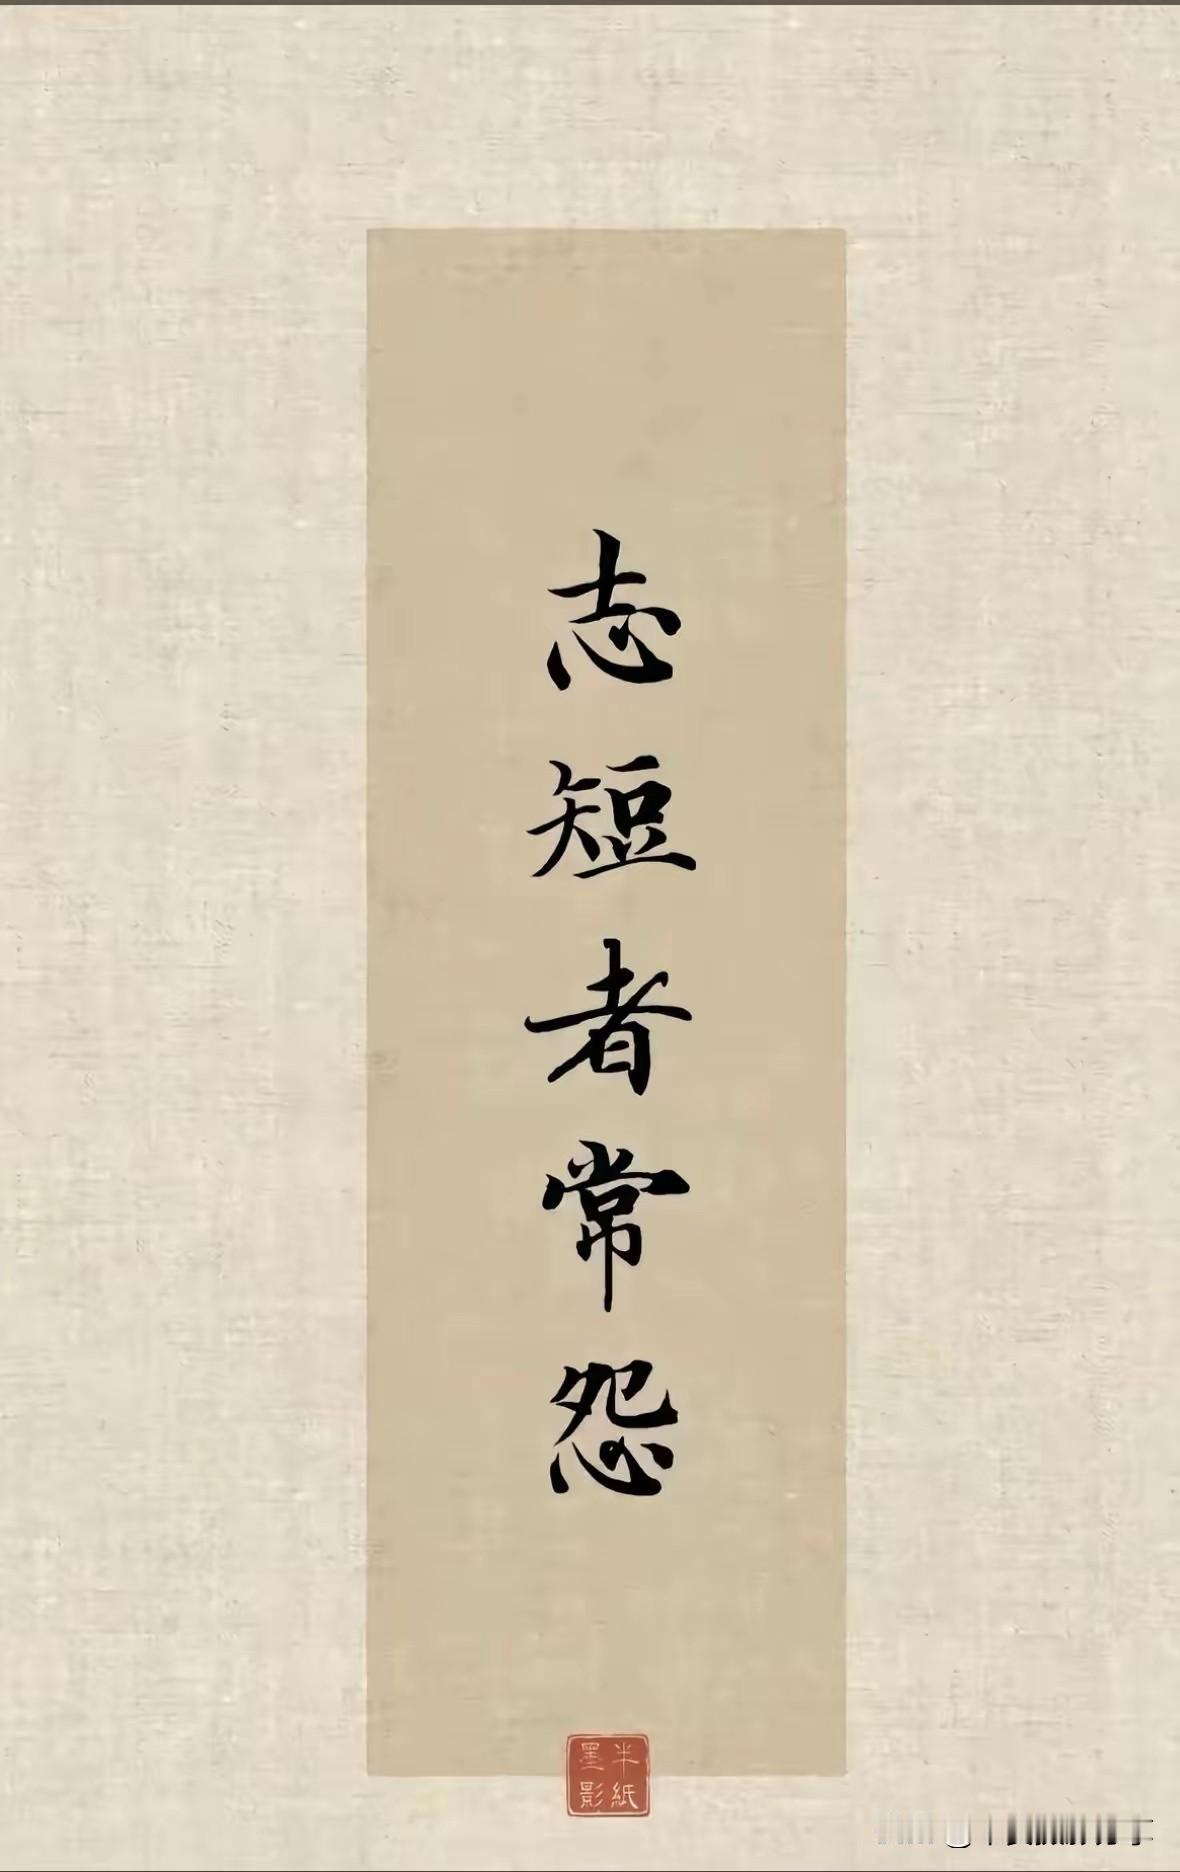 志短者常怨
半紙
墨影